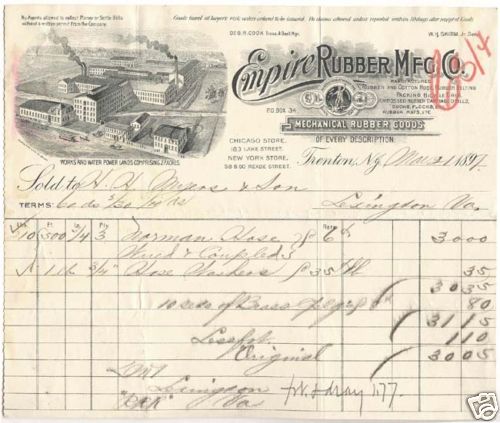 No Agents allowed to collect Money or Settle Bills
without a written permit from the Company.
Goods found at buyer's risk unless ordered to be insured. No claims allowed unless reported within fifteen days after receipt of Goods
GEO. R. COOK Treas. & Gen'l Mgr.
Empire RUBBER MFG. CO.
MANUFACTURERS
RUBBER AND COTTON HOSE, RUBBER BELTING
PACKING
EMBOSSED RUBBER CARRIAGE CLOTHS,
RUBBER MATS, ETC
P.O. BOX. 34.
MECHANICAL RUBBER GOODS
OF EVERY DESCRIPTION.
WORKS AND WATER POWER LANDS COMPRISING 7 ACRES.
CHICAGO STORE,
183 LAKE STREET.
NEW YORK STORE,
58 & 60 READE STREET.
Trenton, N.J. 1897
Sold to & Son
TERMS: Lexington Va.
Ft. In. Ply Rate
10 500 3/4 3 Norman Hose @ 6¢ 3000
Wired & Coupled
1 lb 3/4" Hose Washers @ 35¢ lb 35
3035
80
3115
Less frt. 110
Original 3005
Lexington frt & dray 1.77
Va
eb
Y